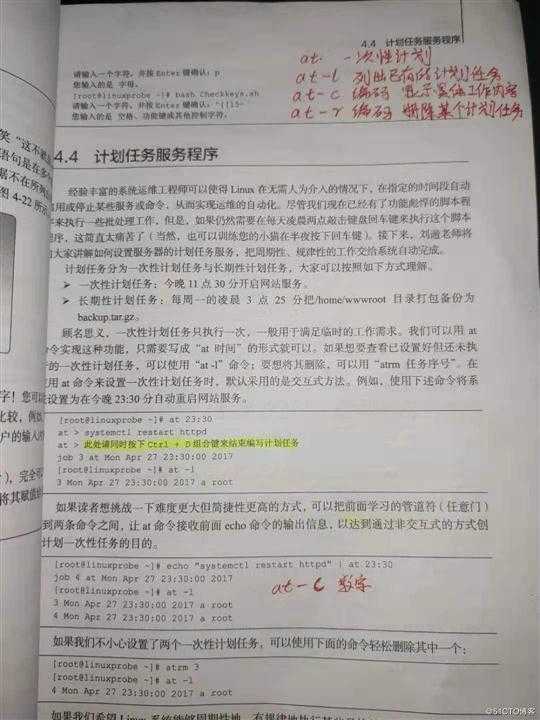 4.4 计划任务服务程序
请输入一个字符，并按 Enter 键确认：p
您输入的是 字母。
[root@linuxprobe ~]# bash Checkkeys.sh
请输入一个字符，并按 Enter 键确认：^[[15~
您输入的是 空格、功能键或其他控制字符。
at 一次性计划
at -l 列出已有的计划任务
at -c 编码 显示具体工作内容
at -r 编码 删除某个计划任务
4.4 计划任务服务程序
经验丰富的系统运维工程师可以使得 Linux 在无需人为介入的情况下，在指定的时间段自动
启用或停止某些服务或命令，从而实现运维的自动化。尽管我们现在已经有了功能彪悍的脚本程
序来执行一些批处理工作，但是，如果仍然需要在每天凌晨两点敲击键盘回车键来执行这个脚本
程序，这简直太痛苦了（当然，也可以训练您的小猫在半夜按下回车键）。接下来，刘遄老师将
向大家讲解如何设置服务器的计划任务服务，把周期性、规律性的工作交给系统自动完成。
计划任务分为一次性计划任务与长期性计划任务，大家可以按照如下方式理解。
➢ 一次性计划任务：今晚 11 点 30 分开启网站服务。
➢ 长期性计划任务：每周一的凌晨 3 点 25 分把/home/wwwroot 目录打包备份为
backup.tar.gz。
顾名思义，一次性计划任务只执行一次，一般用于满足临时的工作需求。我们可以用 at
命令实现这种功能，只需要写成“at 时间”的形式就可以。如果想要查看已设置好但还未执
行的一次性计划任务，可以使用“at -l”命令；要想将其删除，可以用“atrm 任务序号”。在
使用 at 命令来设置一次性计划任务时，默认采用的是交互式方法。例如，使用下述命令将系
统设置为在今晚 23:30 分自动重启网站服务。
[root@linuxprobe ~]# at 23:30
at > systemctl restart httpd
at > 此处请同时按下 Ctrl + D 组合键来结束编写计划任务
job 3 at Mon Apr 27 23:30:00 2017
[root@linuxprobe ~]# at -l
3 Mon Apr 27 23:30:00 2017 a root
如果读者想挑战一下难度更大但简捷性更高的方式，可以把前面学习的管道符（任意门）
放到两条命令之间，让 at 命令接收前面 echo 命令的输出信息，以达到通过非交互式的方式创
建计划一次性任务的目的。
[root@linuxprobe ~]# echo "systemctl restart httpd" | at 23:30
job 4 at Mon Apr 27 23:30:00 2017
[root@linuxprobe ~]# at -l
3 Mon Apr 27 23:30:00 2017 a root
4 Mon Apr 27 23:30:00 2017 a root
at -c 数字
如果我们不小心设置了两个一次性计划任务，可以使用下面的命令轻松删除其中一个：
[root@linuxprobe ~]# atrm 3
[root@linuxprobe ~]# at -l
4 Mon Apr 27 23:30:00 2017 a root
笑“这不就
语句是在多
据不在所例
图 4-22 所示
字！您可
比较，例如
户的输入
），完全可
将其赋值给
@51CTO博客